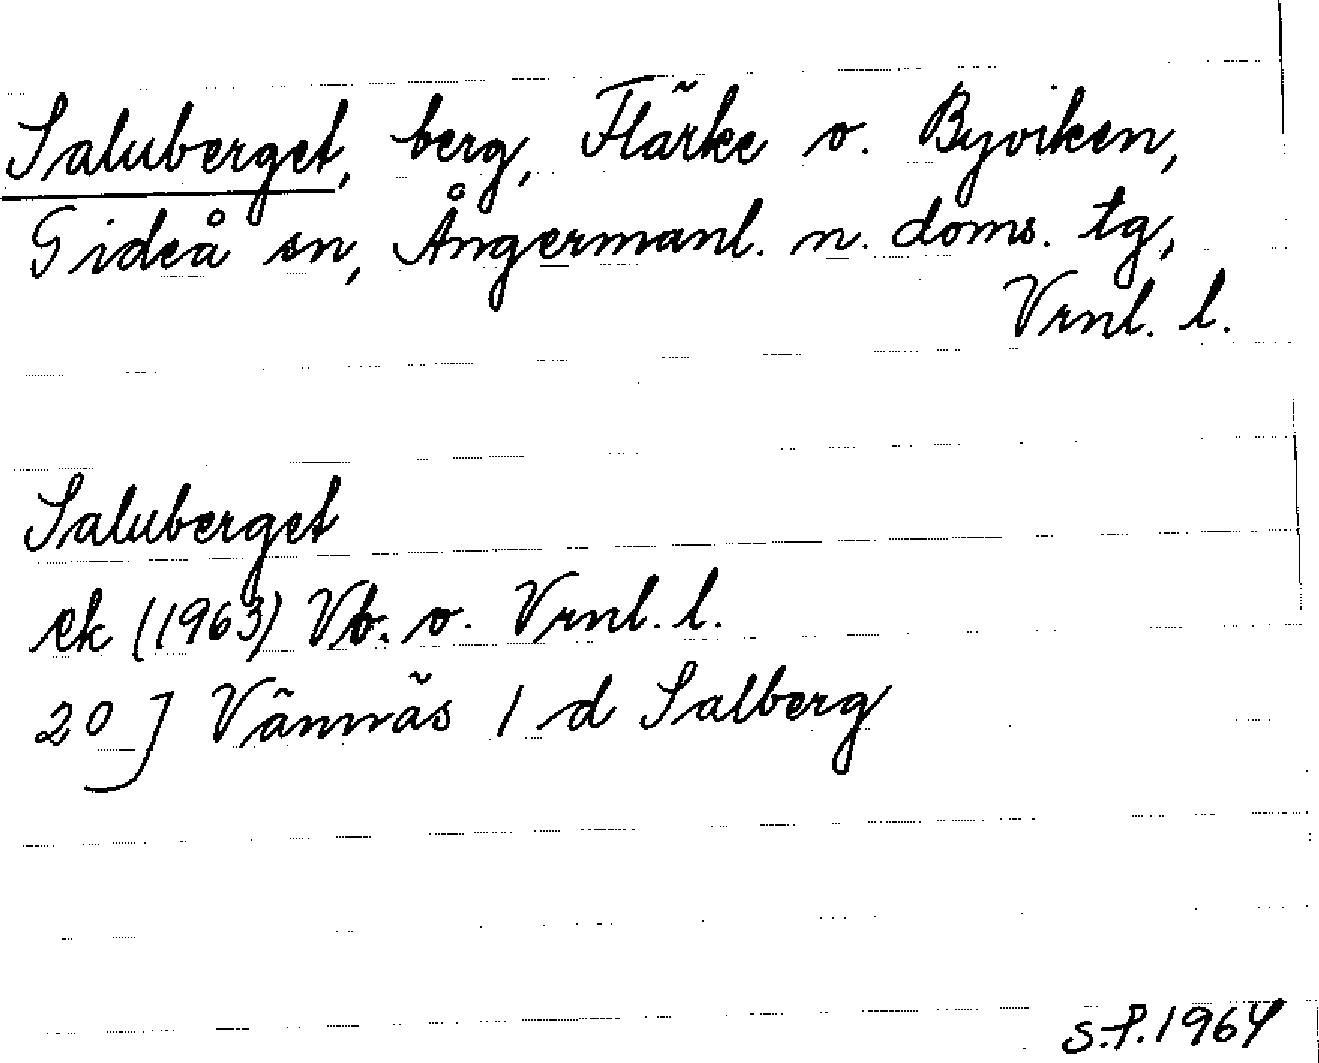 Saluberget, berg, Flärke o. Byviken,
Gideå sn, Ångermanl. n. doms. tg,
Vrnl. l.
Saluberget
ek (1963) Vb. o. Vrnl. l.
20 J Vännäs 1 d Salberg
S.P. 1964